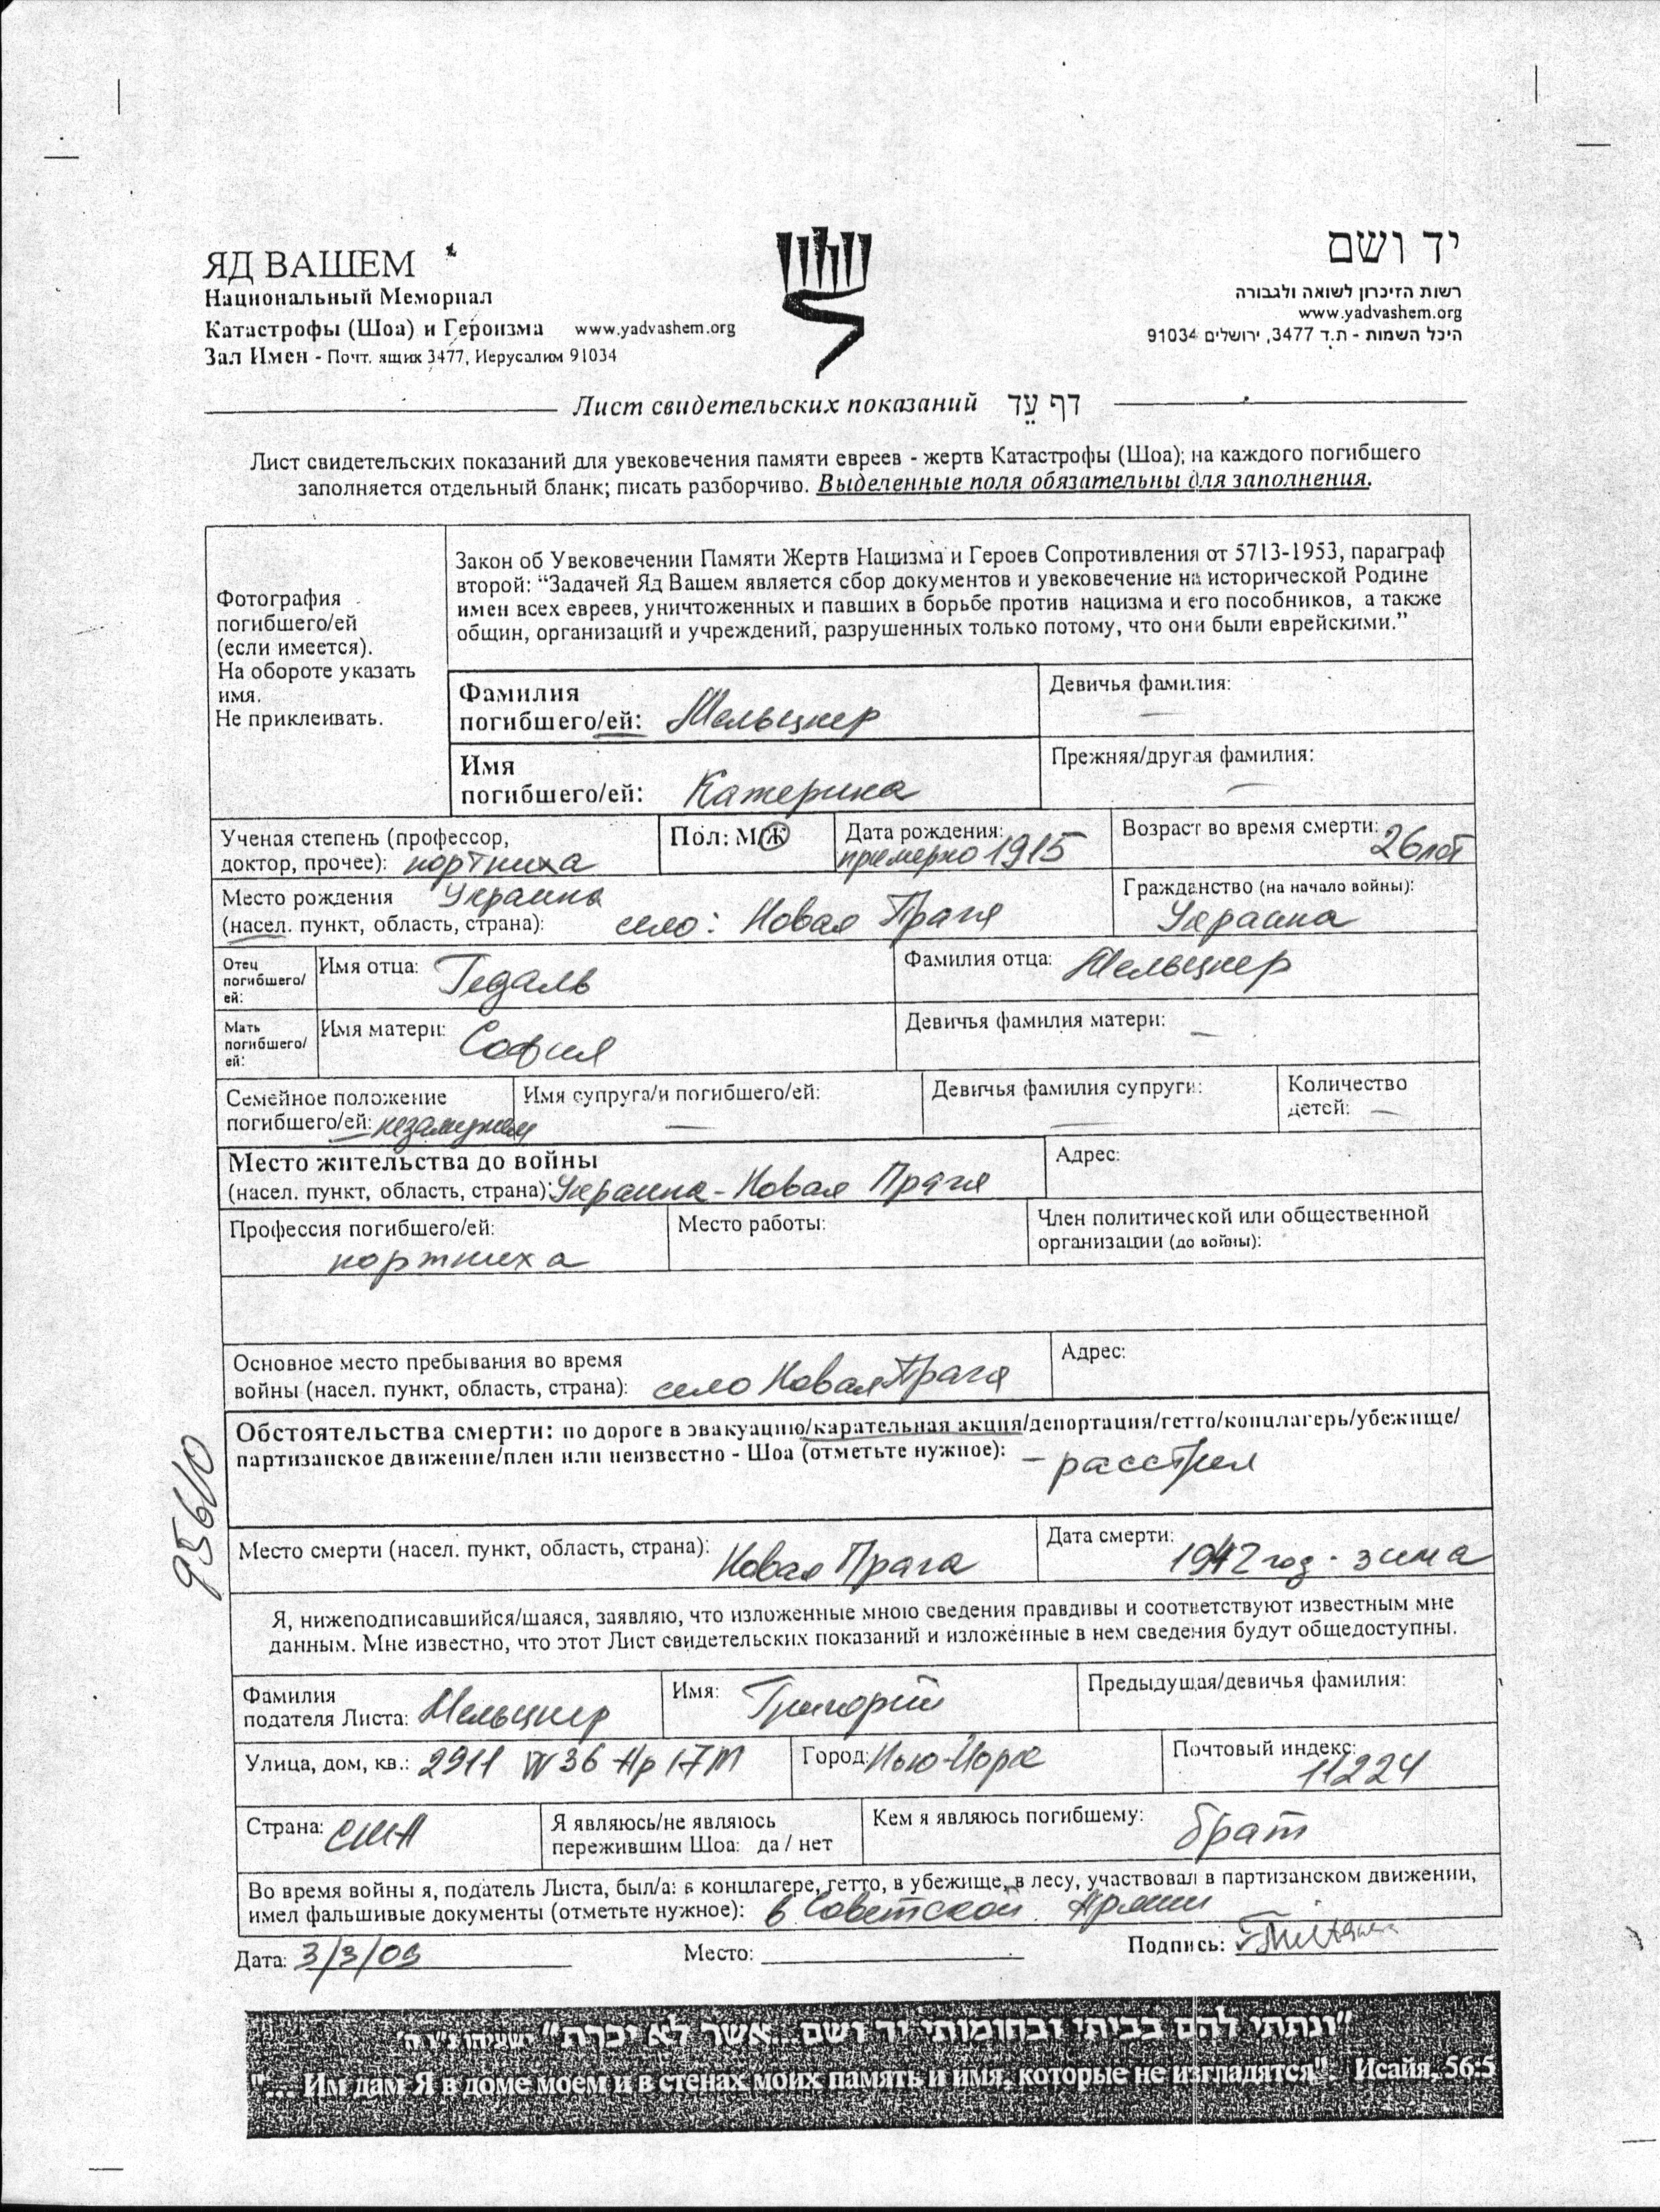 ЯД ВАШЕМ
Национальный Мемориал
Катастрофы (Шоа) и Героизма www.yadvashem.org
Зал Имен - Почт. ящик 3477, Иерусалим 91034
יד ושם
רשות הזיכרון לשואה ולגבורה
www.yadvashem.org
היכל השמות - ת.ד 3477, ירושלים 91034
Лист свидетельских показаний דף עֵד
Лист свидетельских показаний для увековечения памяти евреев - жертв Катастрофы (Шоа); на каждого погибшего
заполняется отдельный бланк; писать разборчиво. Выделенные поля обязательны для заполнения.
Фотография
погибшего/ей
(если имеется).
На обороте указать
имя.
Не приклеивать.
Закон об Увековечении Памяти Жертв Нацизма и Героев Сопротивления от 5713-1953, параграф
второй: “Задачей Яд Вашем является сбор документов и увековечение на исторической Родине
имен всех евреев, уничтоженных и павших в борьбе против нацизма и его пособников, а также
общин, организаций и учреждений, разрушенных только потому, что они были еврейскими.”
Фамилия
погибшего/ей: Мельцнер
Девичья фамилия: —
Имя
погибшего/ей: Катерина
Прежняя/другая фамилия: —
Ученая степень (профессор,
доктор, прочее): портниха
Пол: М/Ж
Дата рождения:
примерно 1915
Возраст во время смерти:
26 лет
Место рождения Украина
(насел. пункт, область, страна): село: Новая Прага
Гражданство (на начало войны):
Украина
Отец
погибшего/
ей:
Имя отца: Гедаль
Фамилия отца: Мельцнер
Мать
погибшего/
ей:
Имя матери: София
Девичья фамилия матери: —
Семейное положение
погибшего/ей: незамужем
Имя супруга/и погибшего/ей:
—
Девичья фамилия супруги:
—
Количество
детей: —
Место жительства до войны
(насел. пункт, область, страна): Украина - Новая Прага
Адрес:
Профессия погибшего/ей:
портниха
Место работы:
Член политической или общественной
организации (до войны):
Основное место пребывания во время
войны (насел. пункт, область, страна): село Новая Прага
Адрес:
Обстоятельства смерти: по дороге в эвакуацию/карательная акция/депортация/гетто/концлагерь/убежище/
партизанское движение/плен или неизвестно - Шоа (отметьте нужное): - расстрел
95610
Место смерти (насел. пункт, область, страна): Новая Прага
Дата смерти:
1942 год - зима
Я, нижеподписавшийся/шаяся, заявляю, что изложенные мною сведения правдивы и соответствуют известным мне
данным. Мне известно, что этот Лист свидетельских показаний и изложенные в нем сведения будут общедоступны.
Фамилия
подателя Листа: Мельцнер
Имя: Григорий
Предыдущая/девичья фамилия:
Улица, дом, кв.: 2911 W 36 Ap 17M
Город: Нью-Йорк
Почтовый индекс:
11224
Страна: США
Я являюсь/не являюсь
пережившим Шоа: да / нет
Кем я являюсь погибшему:
брат
Во время войны я, податель Листа, был/а: в концлагере, гетто, в убежище, в лесу, участвовал в партизанском движении,
имел фальшивые документы (отметьте нужное): в Советской Армии
Дата: 3/3/09
Место:
Подпись:
"ונתתי להם בביתי ובחומותי יד ושם...אשר לא יכרת" ישעיהו נ"ו ה'
"... Им дам Я в доме моем и в стенах моих память и имя, которые не изгладятся". Исайя, 56:5